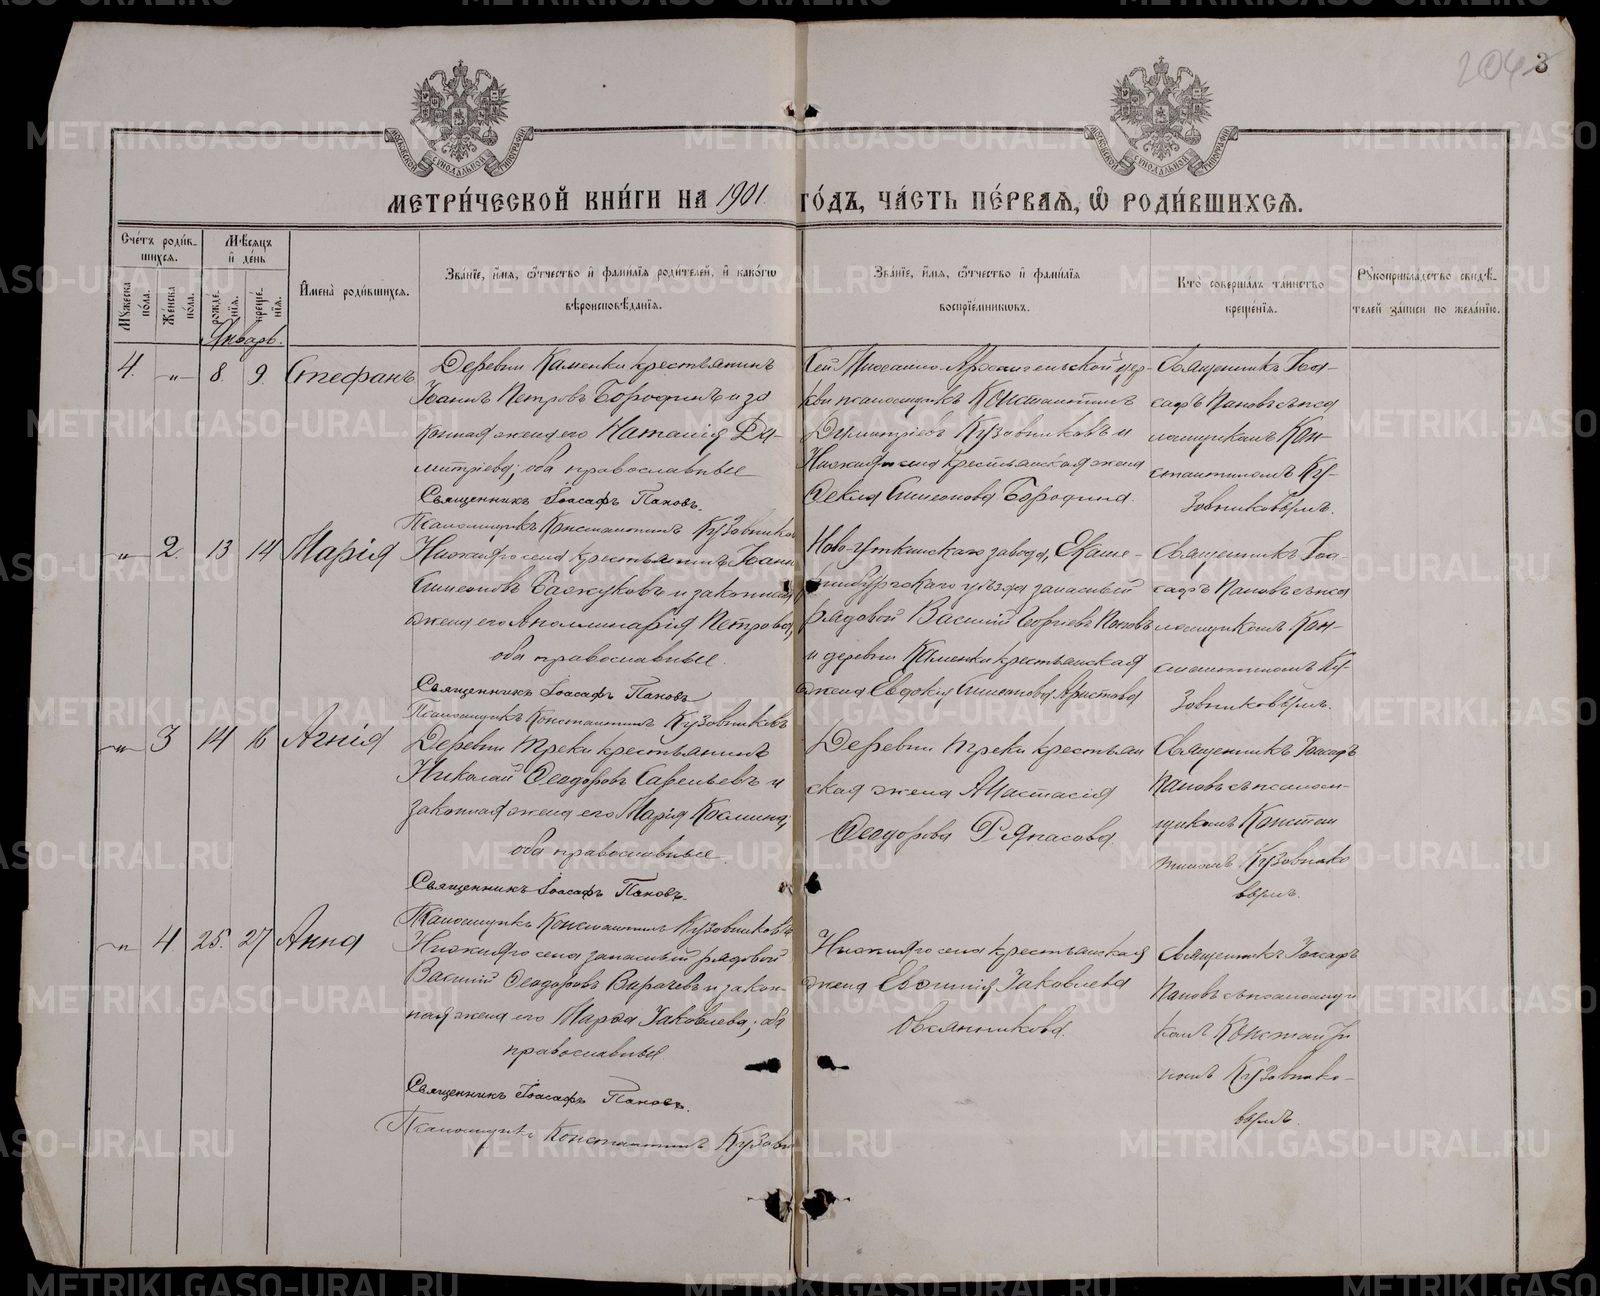 204 3
МЕТРИ́ЧЕСКОЙ КНИ́ГИ НА 1901 ГО́ДЪ, ЧА́СТЬ ПЕ́РВАѦ, Ѡ҆ РОДИ́ВШИХСѦ.
Сче́тъ роди́вшихсѧ.
Мꙋ́жеска по́ла.
Же́нска по́ла.
Мѣ́сѧцъ и҆ де́нь
рожде́нїѧ.
креще́нїѧ.
И҆мена̀ роди́вшихсѧ.
Зва́нїе, и҆́мѧ, ѻ҆́тчество и҆ фами́лїѧ роди́телей, и҆ како́гѡ
вѣроисповѣ́данїѧ.
Зва́нїе, и҆́мѧ, ѻ҆́тчество и҆ фами́лїѧ
воспрїе́мникѡвъ.
Кто̀ соверша́лъ та́инство
креще́нїѧ.
Рꙋкоприкла́дство свидѣ́-
телей за́писи по жела́нїю.
Январь.
4. " 8. 9. Стефанъ
Деревни Каменки крестьянинъ
Іоаннъ Петровъ Бородинъ и за
конная жена его Наталія Ди-
митріева; оба православные
Священникъ Іоасафъ Пановъ.
Псаломщикъ Константинъ Кузовников
Сей Михаило-Архангельской цер-
кви псаломщикъ Константинъ
Димитріевъ Кузовниковъ и
Нижняго села крестьянская жена
Ѳекла Симеонова Бородина
Священникъ Іоа-
сафъ Пановъ съ пса
ломщикомъ Кон-
стантиномъ Ку-
зовниковымъ.
" 2. 13 14 Марія
Нижняго села крестьянинъ Іоаннъ
Симеоновъ Бажуковъ и законная
жена его Аполлинарія Петрова,
оба православные.
Священникъ Іоасафъ Пановъ
Псаломщикъ Константинъ Кузовниковъ
Ново-Уткинскаго завода, Екате-
ринбургскаго уѣзда запасный
рядовой Василій Георгіевъ Поповъ
и деревни Каменки крестьянская
жена Евдокія Симеонова Аристова
Священникъ Іоа-
сафъ Пановъ съ пса
ломщикомъ Кон-
стантиномъ Ку-
зовниковымъ.
" 3 14 16 Агнія
Деревни Треки крестьянинъ
Николай Ѳеодоровъ Савельевъ и
законная жена его Марія Космина,
оба православные.
Священникъ Іоасафъ Пановъ.
Псаломщикъ Константинъ Кузовниковъ
Деревни Треки крестьян
ская жена Анастасія
Ѳеодорова Ряпасова.
Священникъ Іоасафъ
Пановъ съ псалом-
щикомъ Констан
тиномъ Кузовнико
вымъ.
" 4 25. 27 Анна
Нижняго села запасный рядовой
Василій Ѳеодоровъ Вирачевъ и закон-
ная жена его Марѳа Іаковлева; оба
православные
Священникъ Іоасафъ Пановъ.
Псаломщикъ Константинъ Кузовн
Нижняго села крестьянская
жена Евѳимія Іаковлева
Овсянникова.
Священникъ Іоасафъ
Пановъ съ псаломщи
комъ Константи
номъ Кузовнико-
вымъ.
METRIKI.GASO-URAL.RU